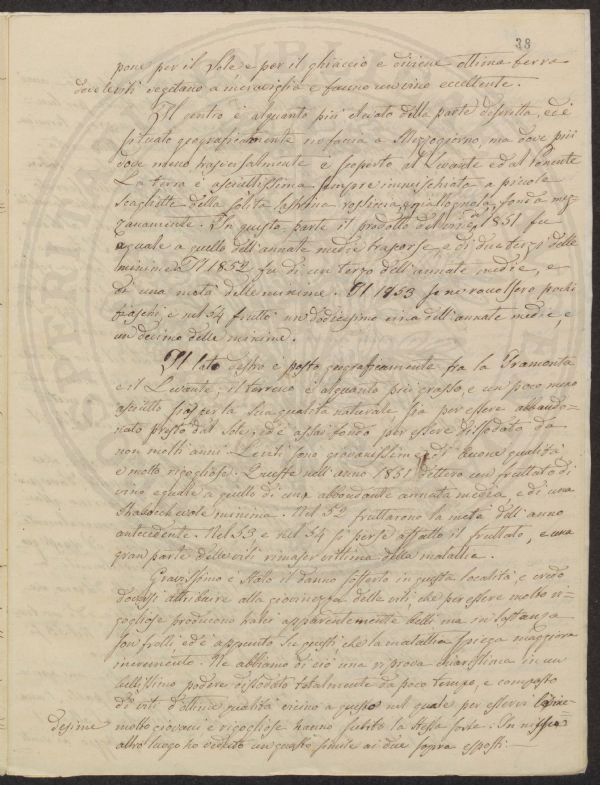 38
pone per il Sole e per il ghiaccio e diviene ottima terra
dove le viti vegetano a meraviglia e fanno un vino eccellente.
Il centro è alquanto più elevato della parte descritta, ed è
situato geograficamente in faccia a Mezzogiorno, ma dove più
dove meno trasversalmente è scoperto al Levante ed al Ponente
La terra è asciuttissima sempre immischiata a piccole
scagliette della solita lastrina rossiccia, e giallognola, fonda mez-
zanamente. In questa parte il prodotto del vino del 1851 fu
eguale a quello dell'annate medie trascorse, e di due terzi delle
minime. Il 1852 fu di un terzo dell'annate medie, e
di una metà delle minime. Il 1853 se ne raccolsero pochi
fiaschi, e nel 54 fruttò un dodicesimo circa dell'annate medie, e
un decimo delle minime.
Il lato destro è posto geograficamente fra la Tramontana
e il Levante, il terreno è alquanto più grasso, e un poco meno
asciutto sia per la sua qualità naturale sia per essere abbando-
nato presto dal Sole, ed è assai fondo per essere dissodato da
non molti anni. Le viti sono giovanissime e di buona qualità
e molto rigogliose. Queste nell'anno 1851 dettero un fruttato di
vino eguale a quello di una abbondante annata media, e di una
minima. Nel 52 fruttarono la metà dell'anno
antecedente. Nel 53 e nel 54 si perse affatto il fruttato, e una
gran parte delle viti rimase vittima della malattia.
Gravissimo è stato il danno sofferto in questa località e credo
doversi attribuire alla giovinezza delle viti, che per essere molto ri-
gogliose producono tralci apparentemente belli ma in sostanza
son frolli ed è appunto su questi che la malattia spiega maggiore
incremento. Ne abbiamo di ciò una riprova chiarissima in un
bellissimo podere dissodato totalmente da poco tempo, e composto
di viti d'ottima qualità vicino a questo nel quale per essere le
desime
molto giovani e rigogliose hanno subito la stessa sorte. In
altro luogo ho veduto un guasto simile ai due sopra esposti.